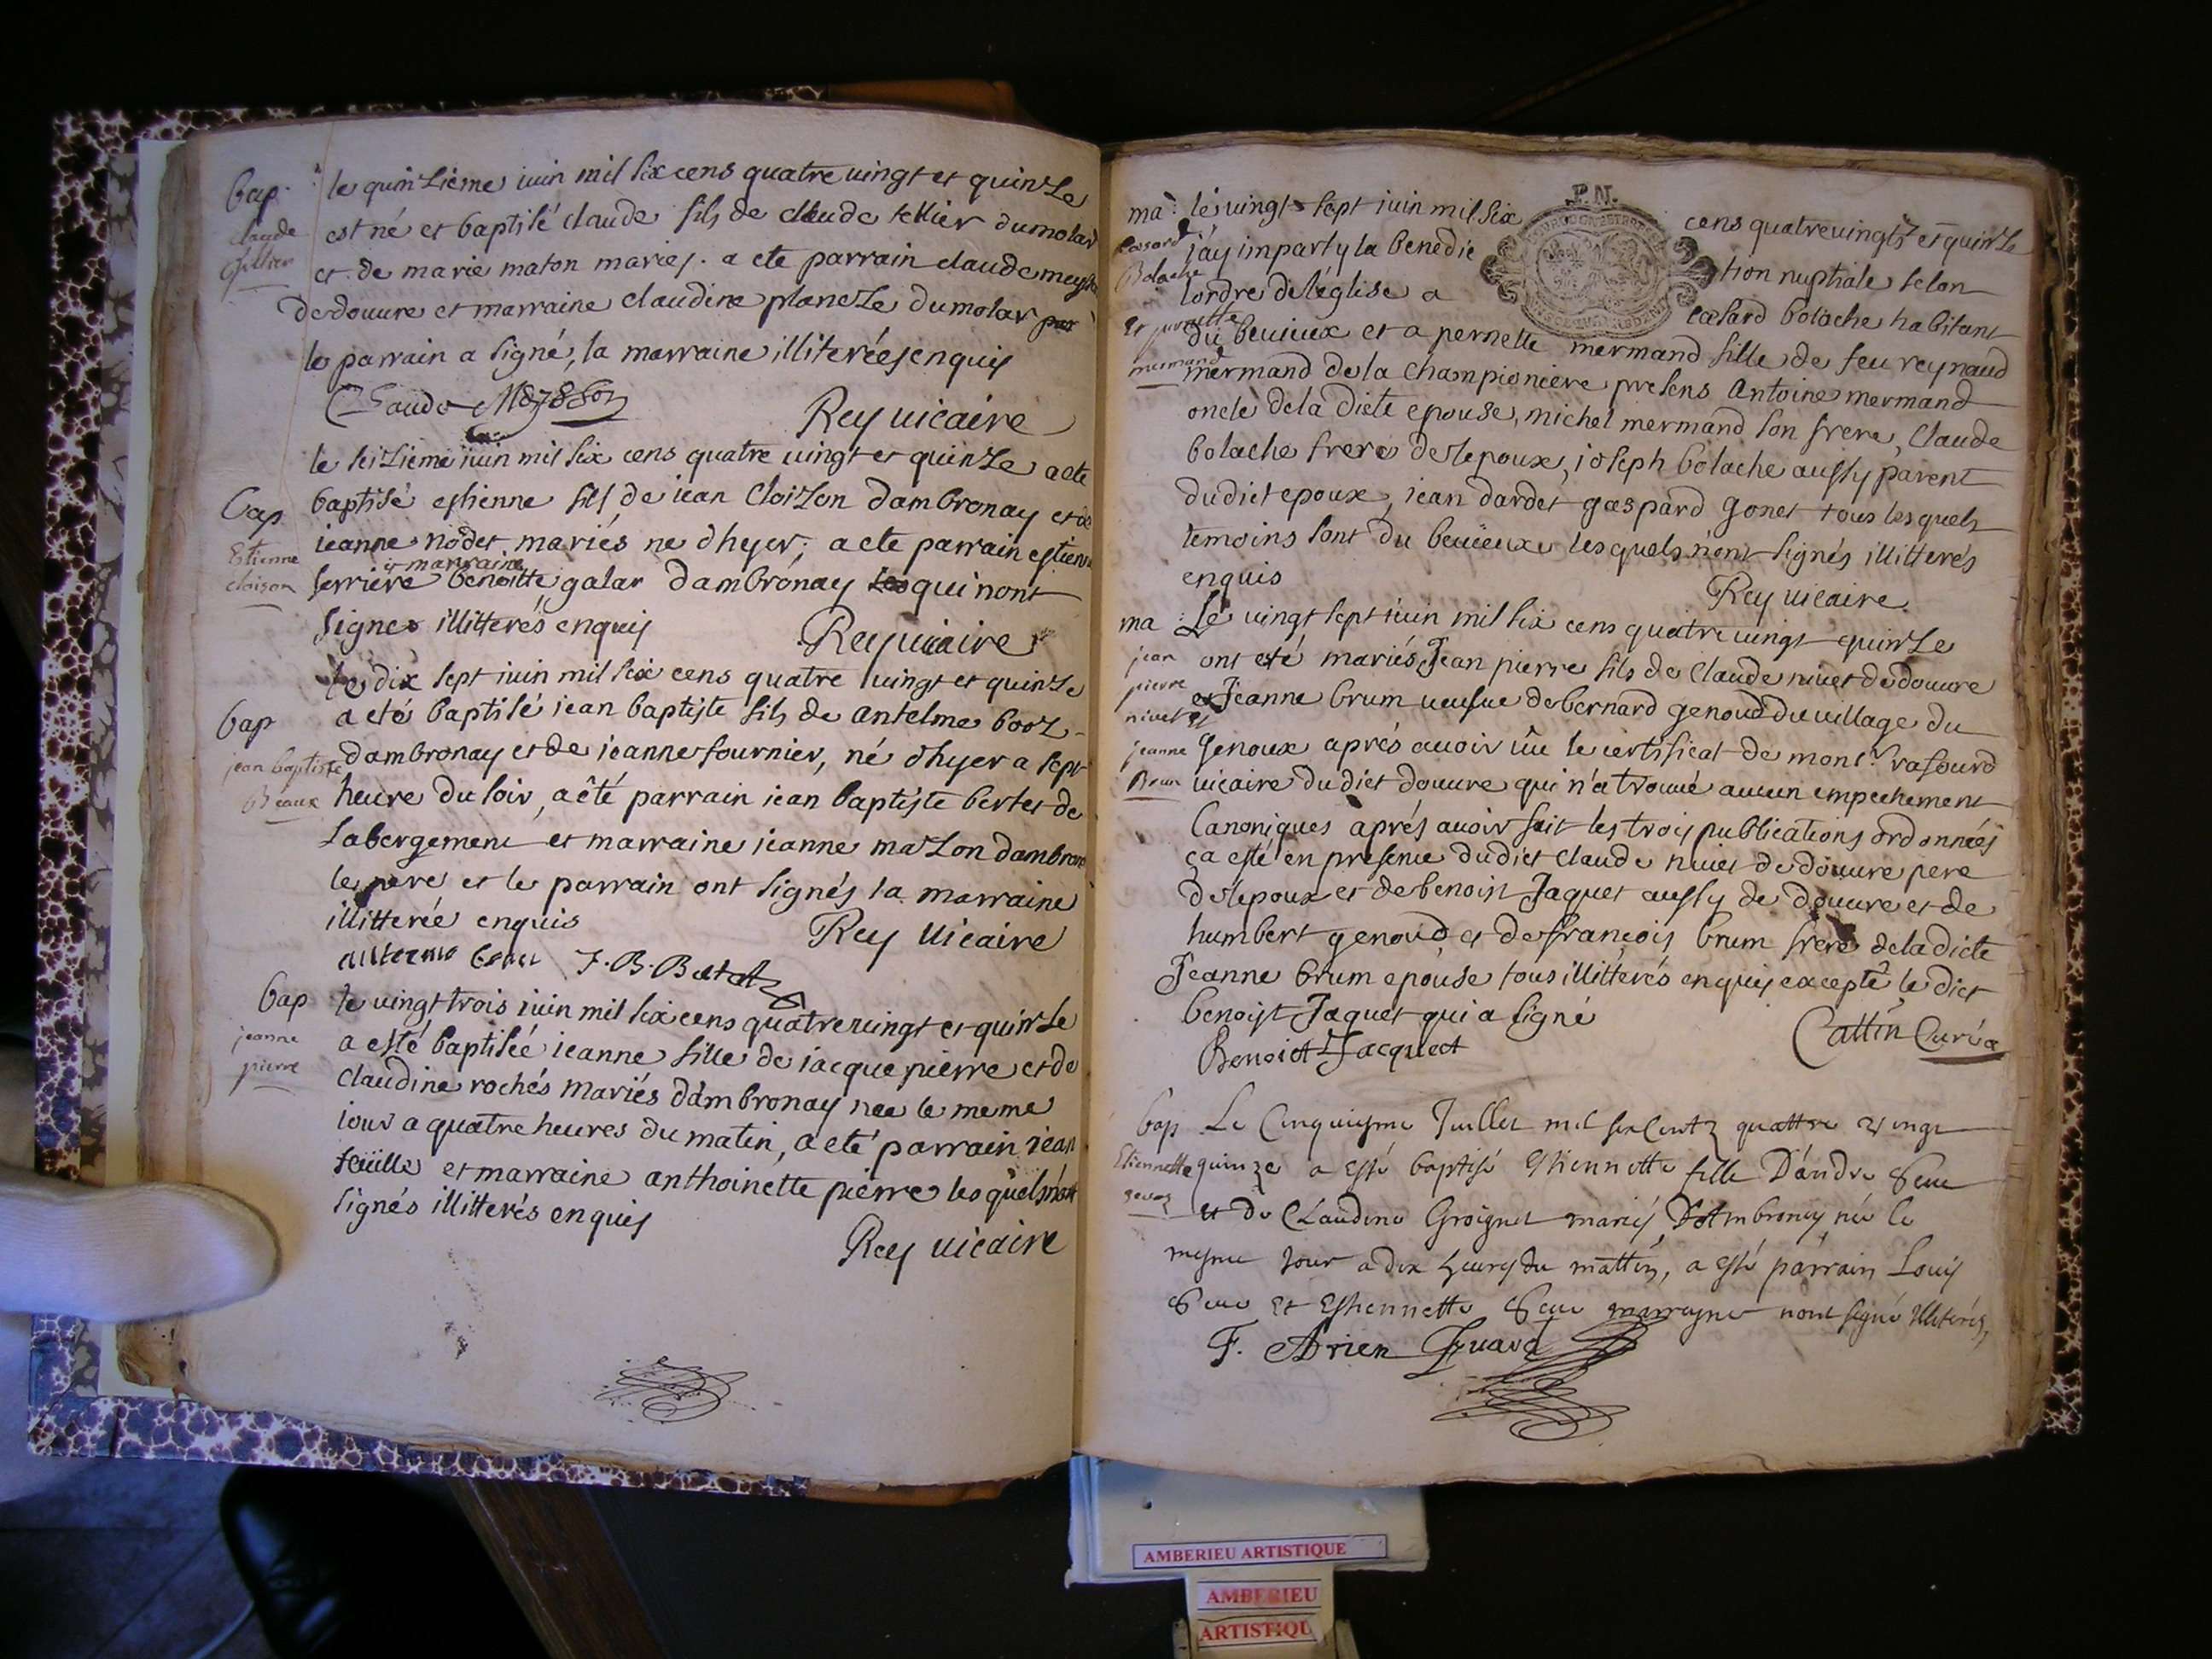 bap. le quinzieme iuin mil six cens quatre uingt et quinze
claude est né et baptisé claude fils de claude tellier dumolar
et de marie maton mariez. a ete parrain claude
de douure et marraine claudine planeze dumolar
le parrain a signé, la marraine illiterées enquis
Claude
Rey uicaire
le seizieme iuin mil six cens quatre uingt et quinze a ete
bap baptisé estienne fils de iean cloizon dambronay et de
Estienne ieanne nodet mariés ne dhyer; a ete parrain estienne
et marraine
cloison serriere benoitte galar dambronay qui nont
signes illitterés enquis
Rey uicaire
le dix sept iuin mil six cens quatre uingt et quinze
bap a eté baptisé iean baptiste fils de antelme booz
jean baptiste dambronay et de ieanne fournier, né dhyer a sept
Beaux heure du soir, a été parrain iean baptiste bertet de
labergement et marraine ieanne mazon dambron
le pere et le parrain ont signés la marraine
illitterée enquis
Rey Uicaire
J. B. Bertet
bap le uingt trois iuin mil six cens quatre uingt et quinze
jeanne a esté baptisée ieanne fille de iacque pierre et de
pierre claudine rochés mariés d'ambronay nee le meme
iour a quatre heures du matin, a eté parrain iean
feüille et marraine anthoinette pierre les quels n'ont
signés illitterés enquis
Rey uicaire
P.N.
ma: le uingt sept iuin mil six cens quatreuingtz et quinze
j'ay imparty la benedic tion nuptiale selon
Bolache lordre de léglise a cæsard bolache habitant
et pernette du beuieux et a pernette mermand fille de feu reynaud
mermand mermand de la championiere presens Antoine mermand
oncle de la dicte epouse, michel mermand son frere, Claude
bolache frere de lepoux, ioseph bolache aussy parent
du dict epoux, iean dardet gaspard gonet tous les quels
temoins sont du beuieux les quels n'ont signés illitterés
enquis
Rey uicaire
ma: Le uingt sept iuin mil six cens quatre uingt quinze
jean ont eté mariés Jean pierre fils de Claude niuet de douure
pierre et Jeanne brum ueufue de bernard genoud du uillage du
niuet et
jeanne Genoux aprés auoir ûu le certificat de monsr. rasourd
Brun uicaire du dict douure qui n'a trouué aucun empechement
Canoniques aprés auoir fait les trois publications ordonnées
ça esté en presence du dict Claude niuet de douure pere
de lepoux et de benoist Jaquet aussy de douure et de
humbert genoud et de françois brum frere de la dicte
Jeanne brum epouse tous illitterés enquis excepté le dict
benoist Jaquet qui a signé
Cattin Curéa
Benoict Jacquect
bap Le Cinquiesme Juillet mil six Centz quattre vingt
Etiennette quinze a esté baptisé Estiennette fille D'andre Seue
et de Claudine Groignet mariés D'Ambronay née le
mesme Jour a dix heures du mattin, a esté parrain Louis
Seue et Estiennette Seue marrayne nont signé Illiterés,
F. Arien
AMBERIEU ARTISTIQUE
AMBERIEU
ARTISTIQU